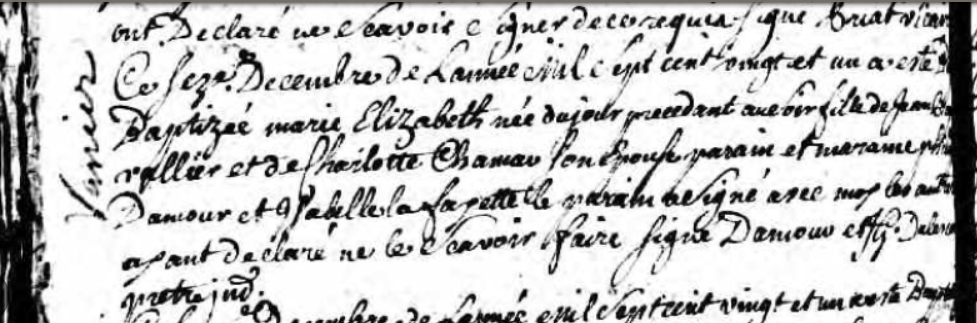 ont Declaré ne Scavoir Signer de ce requis Signé Briat vicar
Ce seze Decembre de Lannée Mil Sept cent vingt et un a esté
Baptizée marie Elizabeth née du jour precedant au soir fille de Jean
vallier et de Charlotte Chamau son Epouse parain et maraine
Damour et Isabelle la fayette le parain a signé avec moy les autres
ayant declaré ne le Scavoir faire signé Damour et
pretre jnd.
Decembre de Lannée Mil Sept cent vingt et un a esté